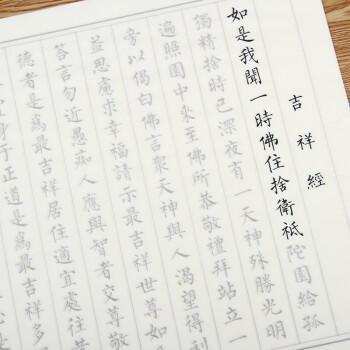 吉祥經
如是我聞一時佛住捨衛祗陀園給孤
獨精捨時已深夜有一天神殊勝光明
遍照園中來至佛所恭敬禮拜站立一
旁以偈白佛言眾天神與人渴望得利
益思慮求幸福請示最吉祥世尊如是
答言勿近愚痴人應與智者交尊敬
德者是為最吉祥居住適宜處往昔
身于正道是為最吉祥多